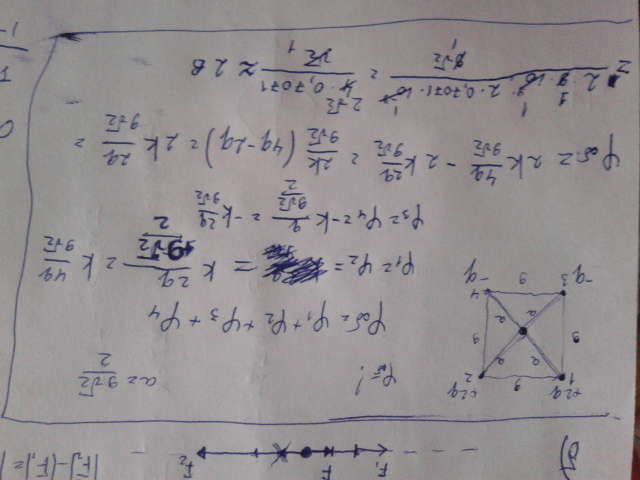 б) F₁ F F₂ |F₂|-|F₁|=
+2q 9 +2q
1 2
a a
9 9
a a
3 4
-q 9 -q
φоб=! a = 9√2/2
φоб = φ₁ + φ₂ + φ₃ + φ₄
φ₁ = φ₂ = = k 2q/(9√2/2) = k 4q/9√2
φ₃ = φ₄ = -k q/(9√2/2) = -k 2q/9√2
φоб = 2k 4q/9√2 - 2k 2q/9√2 = 2k/9√2 (4q-2q) = 2k 2q/9√2 =
= 2·9·10⁹·2·0,7071·10⁻⁹/9√2 = 4·0,7071/√2 ≈ 2 В